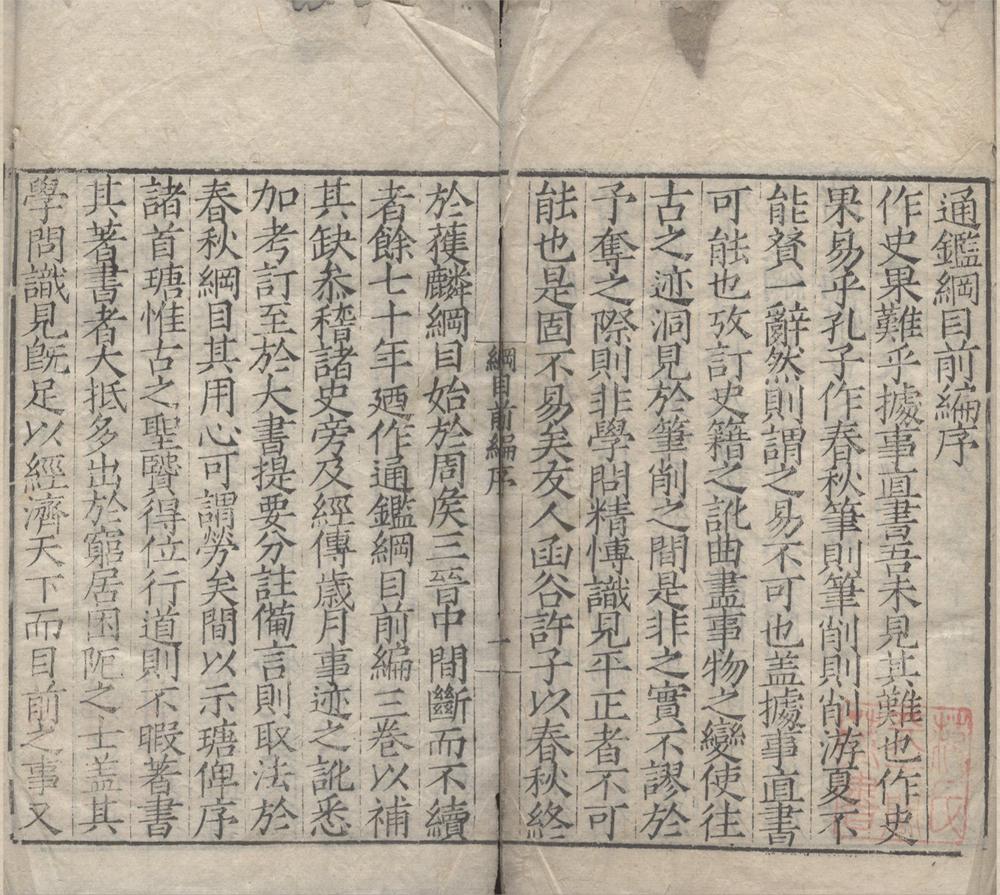 通鑑綱目前編序
作史果難乎據事直書吾未見其難也作史
果易乎孔子作春秋筆則筆削則削游夏不
能贊一辭然則謂之易不可也盖據事直書
可能也攷訂史籍之訛曲盡事物之變使往
古之迹洞見於筆削之間是非之實不謬於
予奪之際則非學問精愽識見平正者不可
能也是固不易矣友人函谷許子以春秋終
綱目前編序
一
於獲麟綱目始於周矦三晉中間斷而不續
者餘七十年廼作通鑑綱目前編三卷以補
其缺叅稽諸史旁及經傳歲月事迹之訛悉
加考訂至於大書提要分註備言則取法於
春秋綱目其用心可謂勞矣間以示瑭俾序
諸首瑭惟古之聖賢得位行道則不暇著書
其著書者大抵多出於窮居困阨之士盖其
學問識見旣足以經濟天下而目前之事又